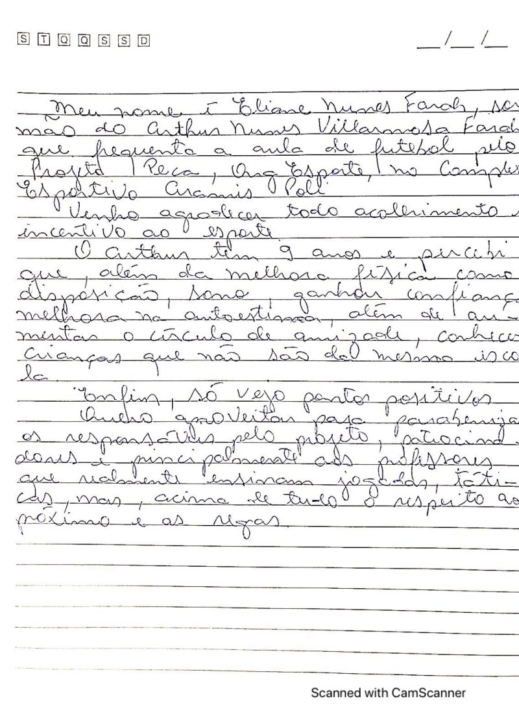 S T Q Q S S D
__/__/__
Meu nome é Eliane Nunes Farah, sou
mãe do Arthur Nunes Villarmosa Farah
que frequenta a aula de futebol pelo
Projeto Peca, Ong Esporte, no Complex
Esportivo Aramis Polli
Venho agradecer todo acolhimento e
incentivo ao esporte
O Arthur tem 9 anos e percebi
que, além da melhora física como
disposição, sono, ganhou confianç
melhora na autoestima, além de au-
mentar o círculo de amizade, conhece
crianças que não são da mesma esco
la.
Enfim, só vejo pontos positivos
Quero aproveitar para parabeniza
os responsáveis pelo projeto, patrocina
dores e principalmente aos professores
que realmente ensinam jogadas, táti-
cas, mas, acima de tudo o respeito ao
próximo e as regras
Scanned with CamScanner